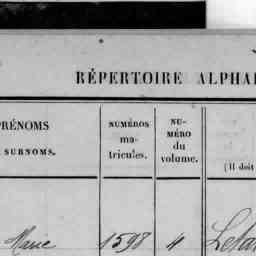 RÉPERTOIRE ALPHA
PRÉNOMS
SURNOMS.
NUMÉROS
ma-
tricules.
NU-
MÉRO
du
volume.
(Il doit
Marie 1598 4